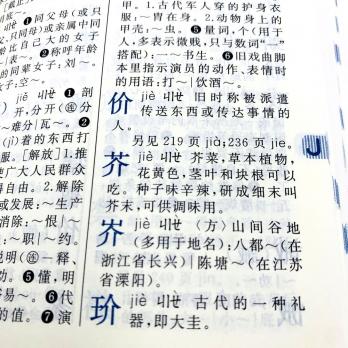 同父母(或只
只同母)或亲属中同
比自己大的女子
表~。❷称呼年龄
的同辈女子:刘~。
子:空~。
jiě ㄐㄧㄝˇ ❶剖
开,分开(㊣分
~难分|瓦~。❷
(jì)着的东西打
服。[解放]1.推
使广大人民群众
得自由。2.解除
或发展:~生产
消除:~恨|~
~职|~约。
说明(㊣一释、
功。❺懂,明
易~。❻代
的值。❼演
甲。1.古代军人穿的护身衣
服:~胄在身。2.动物身上的
甲壳:~虫。❺量词,个(用于
人,多表示微贱,只与数词“一”
搭配):一~书生。❻旧戏曲脚
本里指示演员的动作、表情时
的用语:打~|饮酒~。
价 jiè ㄐㄧㄝˋ 旧时称被派遣
传送东西或传达事情的
人。
另见219页 jià;236页 jie。
芥 jiè ㄐㄧㄝˋ 芥菜,草本植物,
花黄色,茎叶和块根可以
吃。种子味辛辣,研成细末叫
芥末,可供调味用。
岕 jiè ㄐㄧㄝˋ (方)山间谷地
(多用于地名):八都~(在
浙江省长兴)|陈塘~(在江苏
省溧阳)。
玠 jiè ㄐㄧㄝˋ 古代的一种礼
器,即大圭。
J